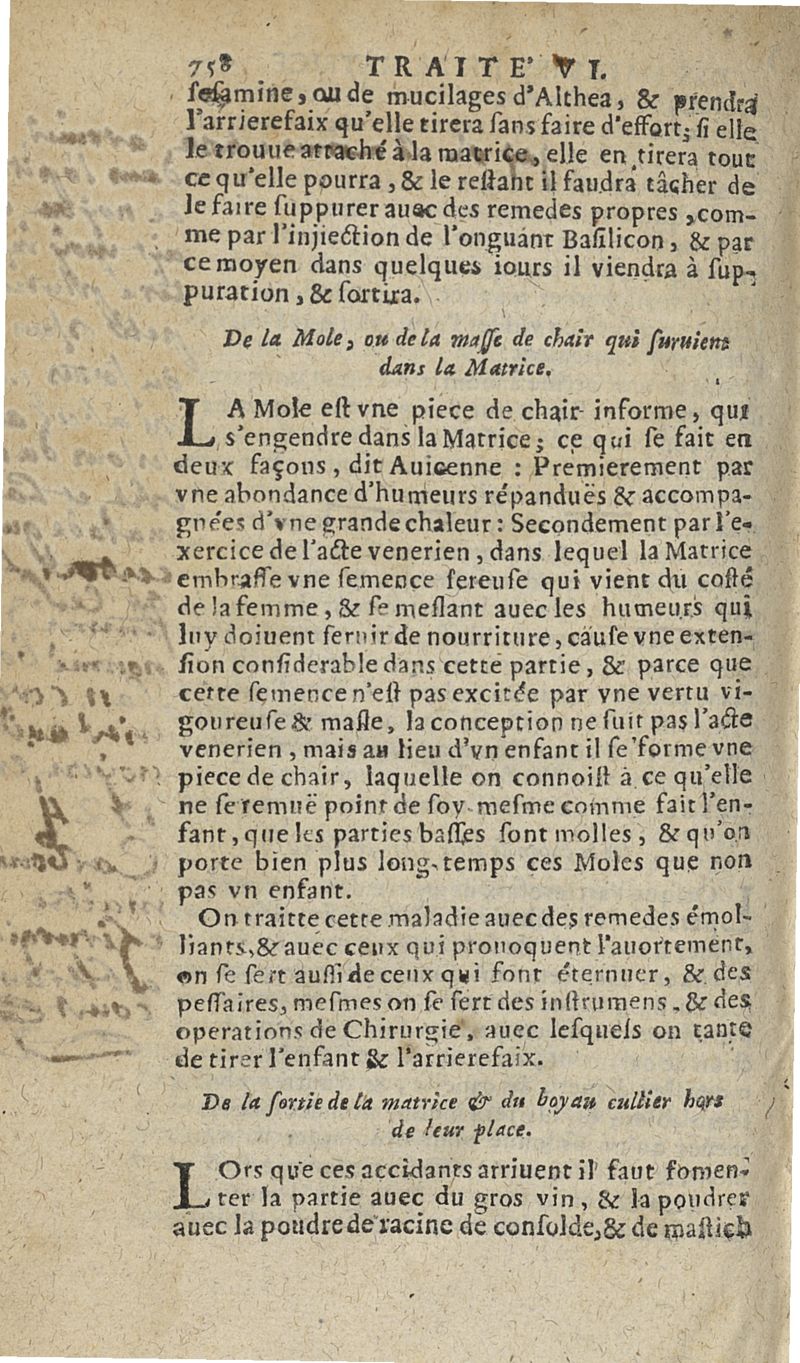 758 TRAITE' VI.
sesamine, ou de mucilages d'Althea, & prendra
l'arrierefaix qu'elle tirera sans faire d'effort; si elle
le trouue attaché à la matrice, elle en tirera tout
ce qu'elle pourra, & le restant il faudra tâcher de
le faire suppurer auec des remedes propres, com-
me par l'injiection de l'onguant Basilicon, & par
ce moyen dans quelques iours il viendra à sup-
puration, & sortira.
De la Mole, ou de la masse de chair qui suruient
dans la Matrice.
LA Mole est vne piece de chair informe, qui
s'engendre dans la Matrice; ce qui se fait en
deux façons, dit Auicenne : Premierement par
vne abondance d'humeurs répanduës & accompa-
gnées d'vne grande chaleur : Secondement par l'e-
xercice de l'acte venerien, dans lequel la Matrice
embrasse vne semence sereuse qui vient du costé
de la femme, & se meslant auec les humeurs qui
luy doiuent seruir de nourriture, cause vne exten-
sion considerable dans cette partie, & parce que
cette semence n'est pas excitée par vne vertu vi-
goureuse & masle, la conception ne suit pas l'acte
venerien, mais au lieu d'vn enfant il se forme vne
piece de chair, laquelle on connoist à ce qu'elle
ne se remuë point de soy mesme comme fait l'en-
fant, que les parties basses sont molles, & qu'on
porte bien plus long-temps ces Moles que non
pas vn enfant.
On traitte cette maladie auec des remedes émol-
liants, & auec ceux qui prouoquent l'auortement,
on se sert aussi de ceux qui font éternuer, & des
pessaires, mesmes on se sert des instrumens, & des
operations de Chirurgie, auec lesquels on tante
de tirer l'enfant & l'arrierefaix.
De la sortie de la matrice & du boyau cullier hors
de leur place.
LOrs que ces accidants arriuent il faut fomen-
ter la partie auec du gros vin, & la poudrer
auec la poudre de racine de consolde, & de mastich